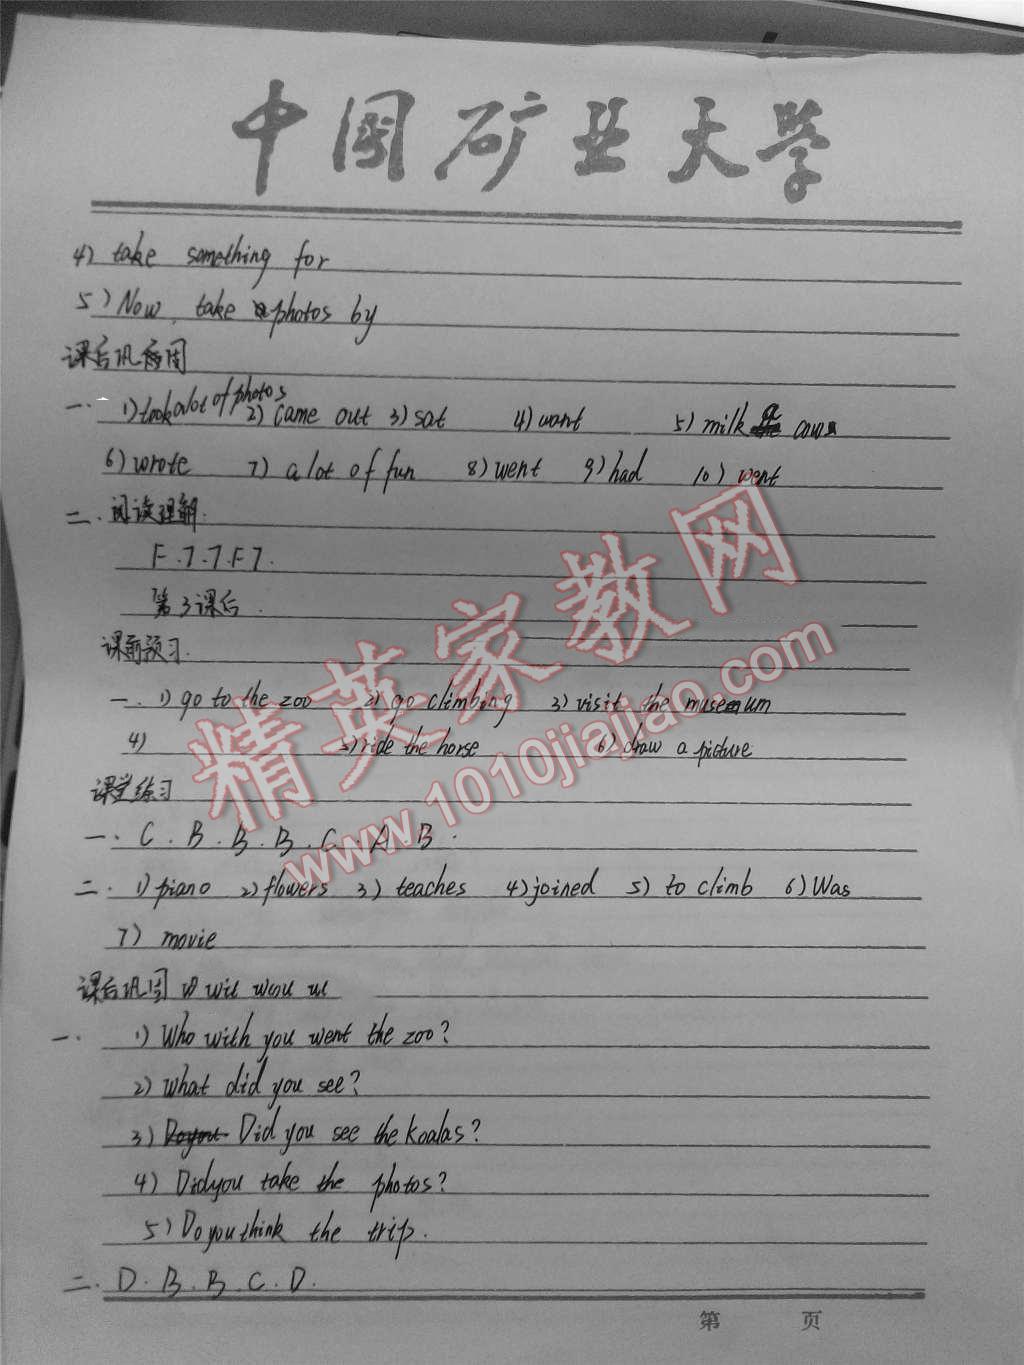 中国矿业大学
4) take something for
5) Now, take photos by
课后巩固
一. 1) took a lot of photos 2) came out 3) sat 4) want 5) milk a cow
6) wrote 7) a lot of fun 8) went 9) had 10) went
二. 阅读理解.
F.T.T.F T.
第3课后.
课前预习.
一. 1) go to the zoo 2) go climbing 3) visit the museum
4) 5) ride the horse 6) draw a picture
课堂练习
一. C.B.B.B.C.A.B.
二. 1) piano 2) flowers 3) teaches 4) joined 5) to climb 6) Was
7) movie
课后巩固
一. 1) Who with you went the zoo?
2) What did you see?
3) Did you see the koalas?
4) Did you take the photos?
5) Do you think the trip.
二. D.B.B.C.D.
第 页
精英家教网
www.1010jiajiao.com